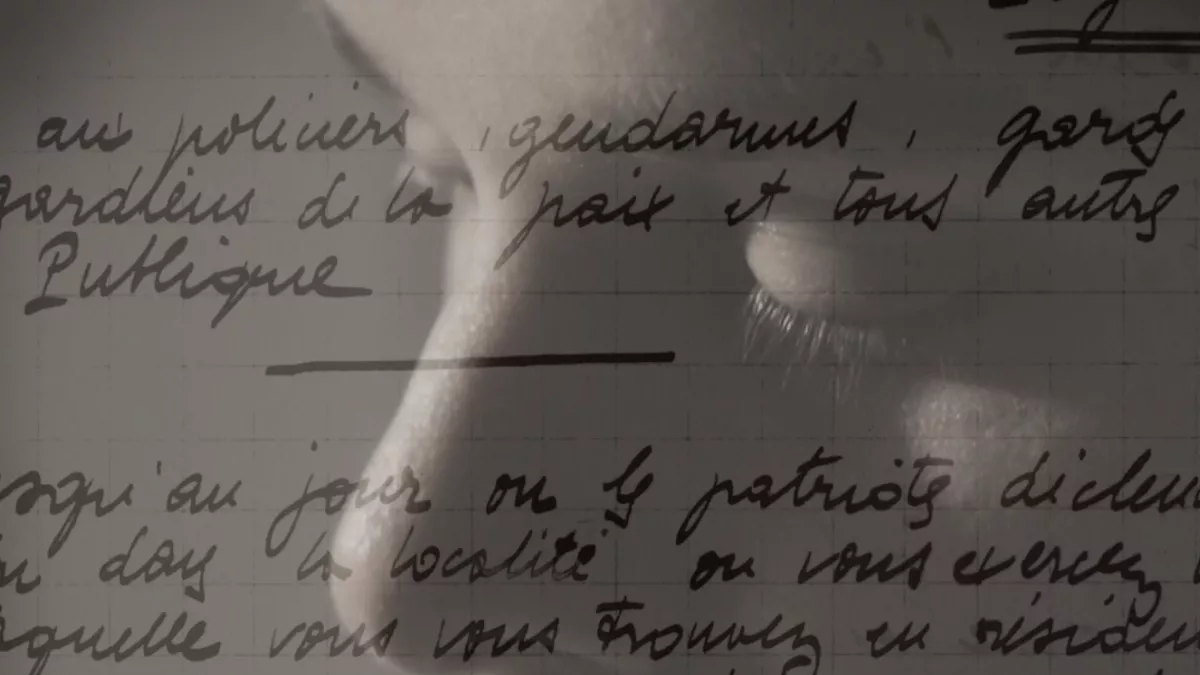 aux policiers, gendarmes, gards
gardiens de la paix et tous autres
Publique
usqu'au jour ou les patriotes declen
dans la localité ou vous exercez
aquelle vous vous trouvez en résiden